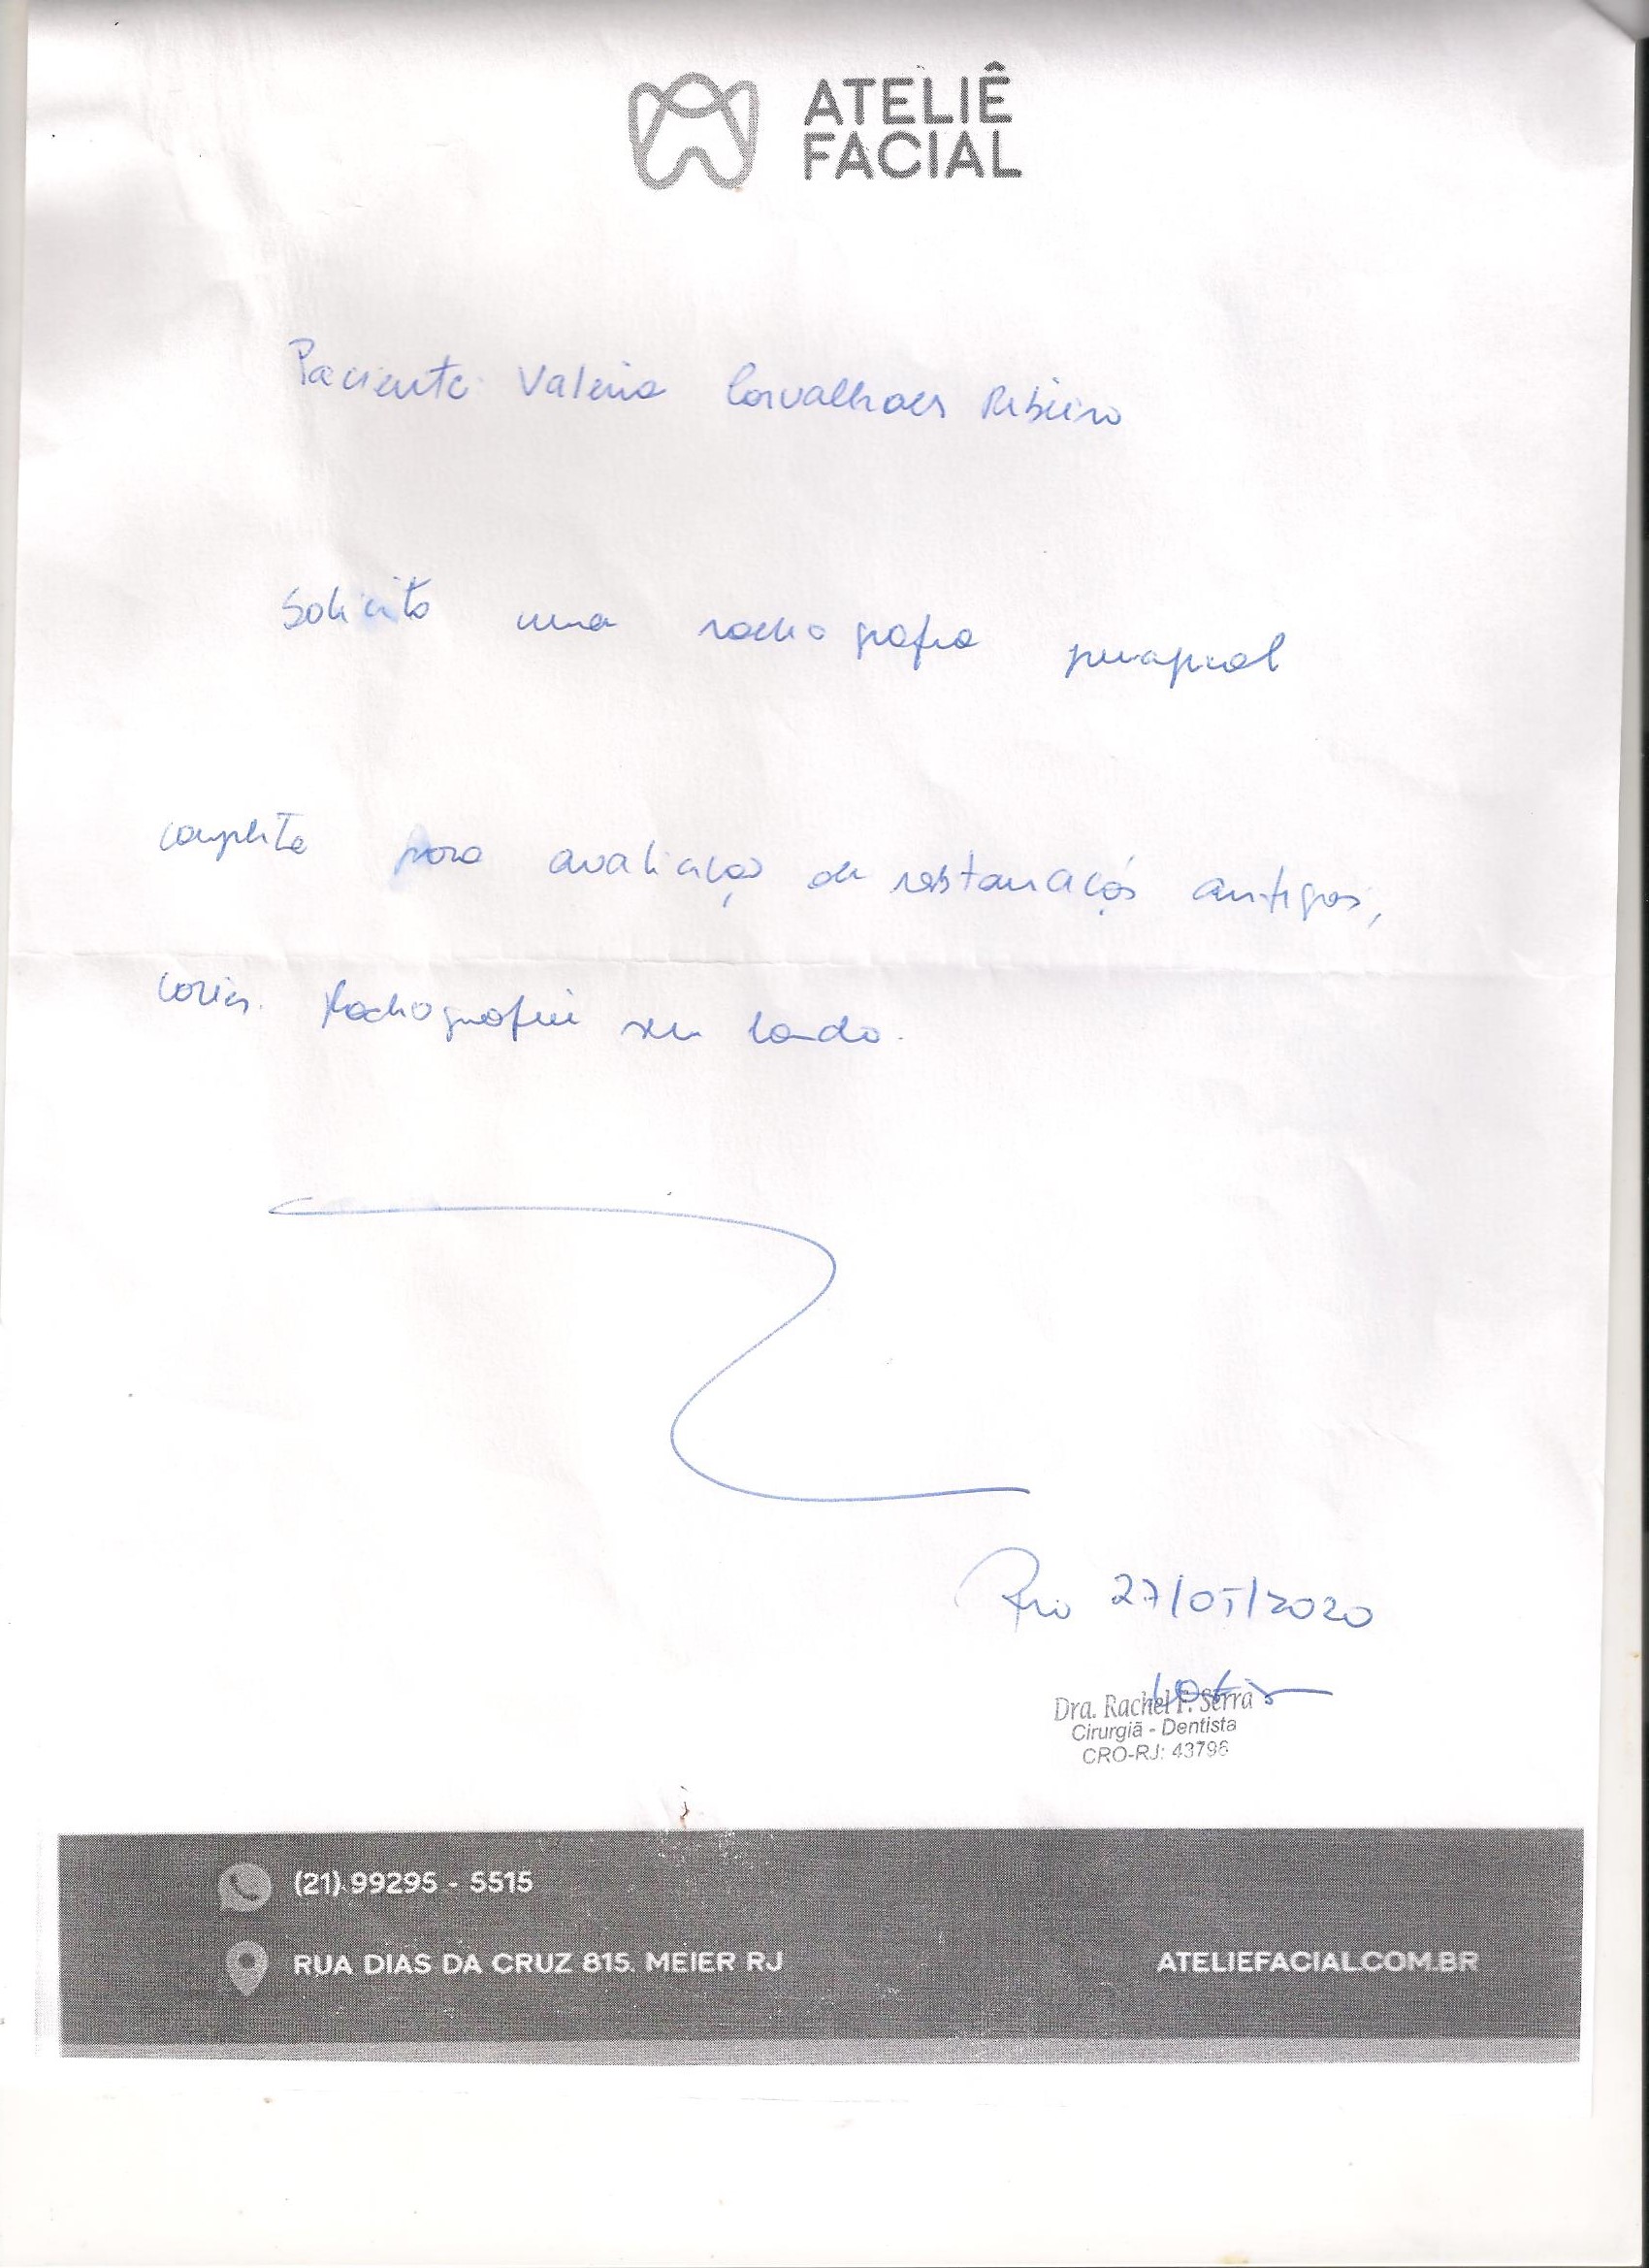 ATELIÊ
FACIAL
Paciente: Valeria Carvalhaes Ribeiro
Solicito uma radiografia periapical
completa para avaliação de restaurações antigas,
caries. Radiografia sem laudo.
Rio 27/05/2020
Dra. Rachel F. Serra
Cirurgiã - Dentista
CRO-RJ: 43796
(21) 99295 - 5515
RUA DIAS DA CRUZ 815. MEIER RJ
ATELIEFACIAL.COM.BR